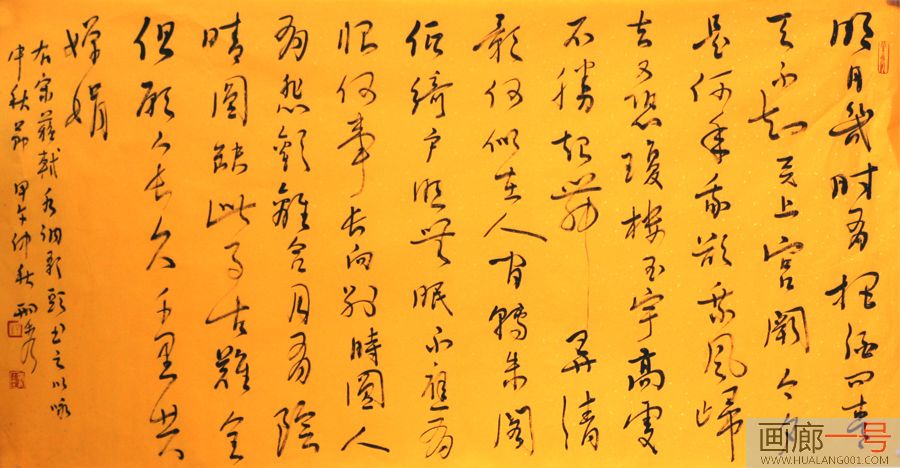 明月幾时有把酒问青
天不知天上宫阙今夕
是何年我欲乘风歸
去又恐瓊楼玉宇高處
不勝起舞弄清
影何似在人间轉朱阁
低绮户照無眠不應有
恨何事长向别時圆人
有悲歡離合月有陰
晴圆缺此事古難全
但愿人长久千里共
嬋娟
右宋蘇軾水调歌頭书之以咏
中秋節 甲午仲秋
画廊一号
WWW.HUALANG001.COM